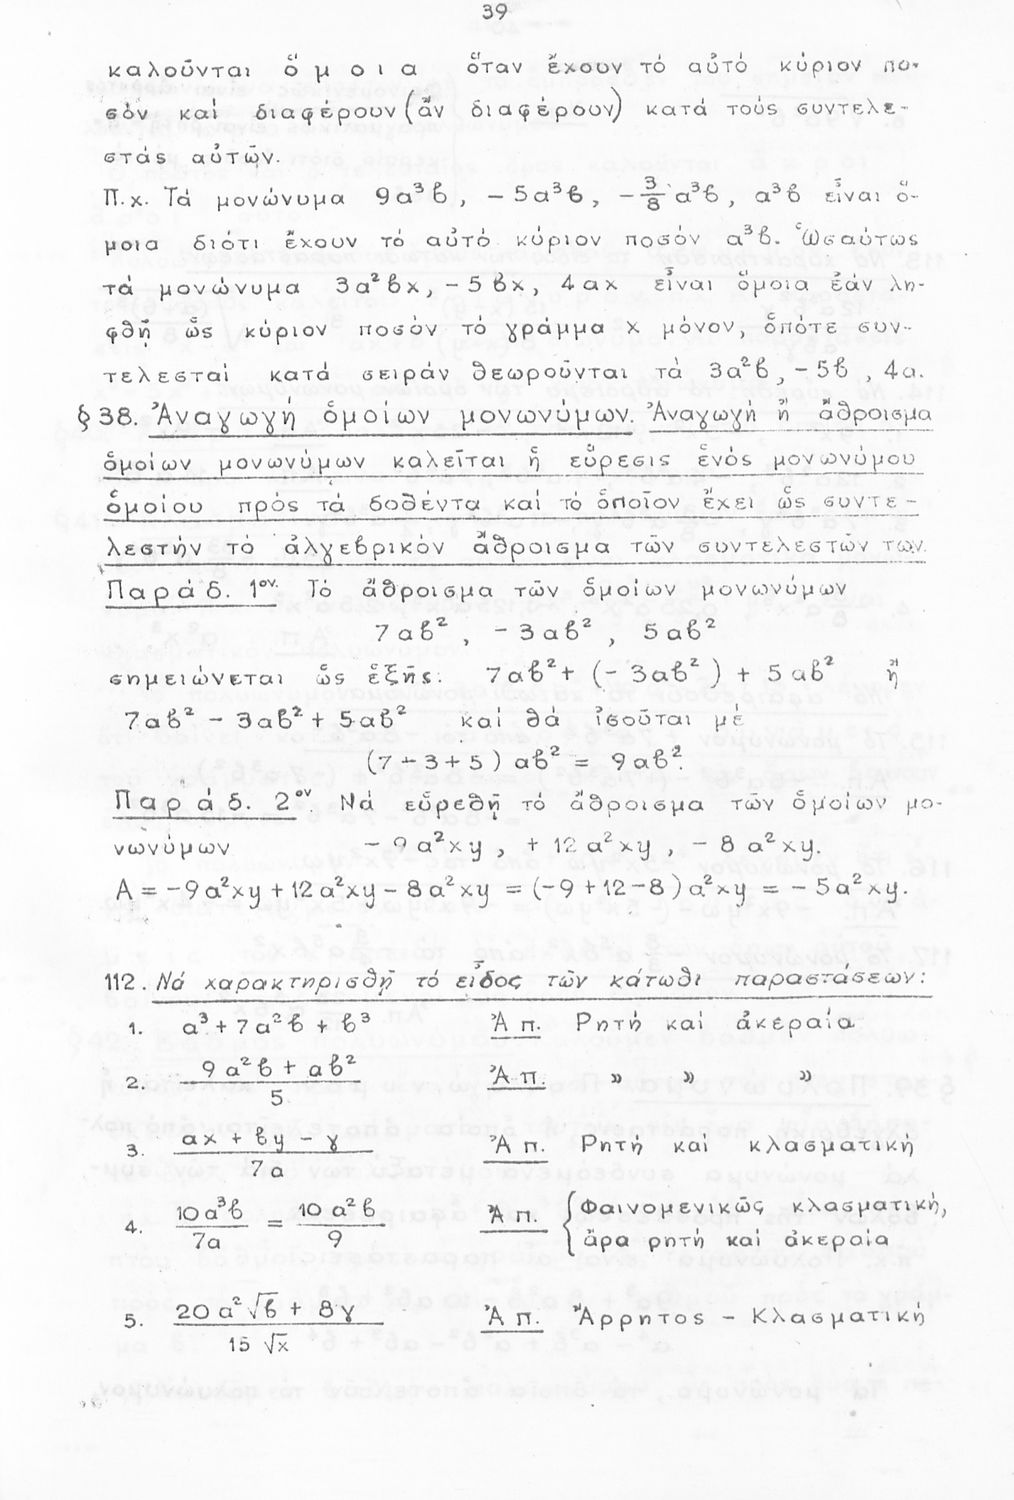 39
καλοῦνται ὅ μ ο ι α ὅταν ἔχουν τό αὐτό κύριον πο-
σόν καί διαφέρουν (ἄν διαφέρουν) κατά τούς συντελε-
στάς αὐτῶν.
Π.χ. Τά μονώνυμα 9α³β, -5α³β, -3/8 α³β, α³β εἶναι ὅ-
μοια διότι ἔχουν τό αὐτό κύριον ποσόν α³β. Ὡσαύτως
τά μονώνυμα 3α²βx, -5βx, 4αx εἶναι ὅμοια ἐάν λη-
φθῇ ὡς κύριον ποσόν τό γράμμα x μόνον, ὁπότε συν-
τελεσταί κατά σειράν θεωροῦνται τά 3α²β, -5β, 4α.
§38. Ἀναγωγή ὁμοίων μονωνύμων. Ἀναγωγή ἤ ἄθροισμα
ὁμοίων μονωνύμων καλεῖται ἡ εὕρεσις ἑνός μονωνύμου
ὁμοίου πρός τά δοθέντα καί τό ὁποῖον ἔχει ὡς συντε-
λεστήν τό ἀλγεβρικόν ἄθροισμα τῶν συντελεστῶν των.
Παράδ. 1ον. Τό ἄθροισμα τῶν ὁμοίων μονωνύμων
7αβ², -3αβ², 5αβ²
σημειώνεται ὡς ἑξῆς: 7αβ² + (-3αβ²) + 5αβ² ἤ
7αβ² - 3αβ² + 5αβ² καί θά ἰσοῦται μέ
(7-3+5) αβ² = 9αβ².
Παράδ. 2ον. Νά εὑρεθῇ τό ἄθροισμα τῶν ὁμοίων μο-
νωνύμων -9α²xy, +12α²xy, -8α²xy.
Α = -9α²xy + 12α²xy - 8α²xy = (-9+12-8)α²xy = -5α²xy.
112. Νά χαρακτηρισθῇ τό εἶδος τῶν κάτωθι παραστάσεων:
1. α³ + 7α²β + β³ Ἀπ. Ρητή καί ἀκεραία
2. (9α²β + αβ²)/5 Ἀπ. » » »
3. (αx + βy - γ)/7α Ἀπ. Ρητή καί κλασματική
4. 10α³β/7α = 10α²β/9 Ἀπ. {Φαινομενικῶς κλασματική,
ἄρα ρητή καί ἀκεραία
5. (20α²√β + 8γ)/15√x Ἀπ. Ἄρρητος - Κλασματική